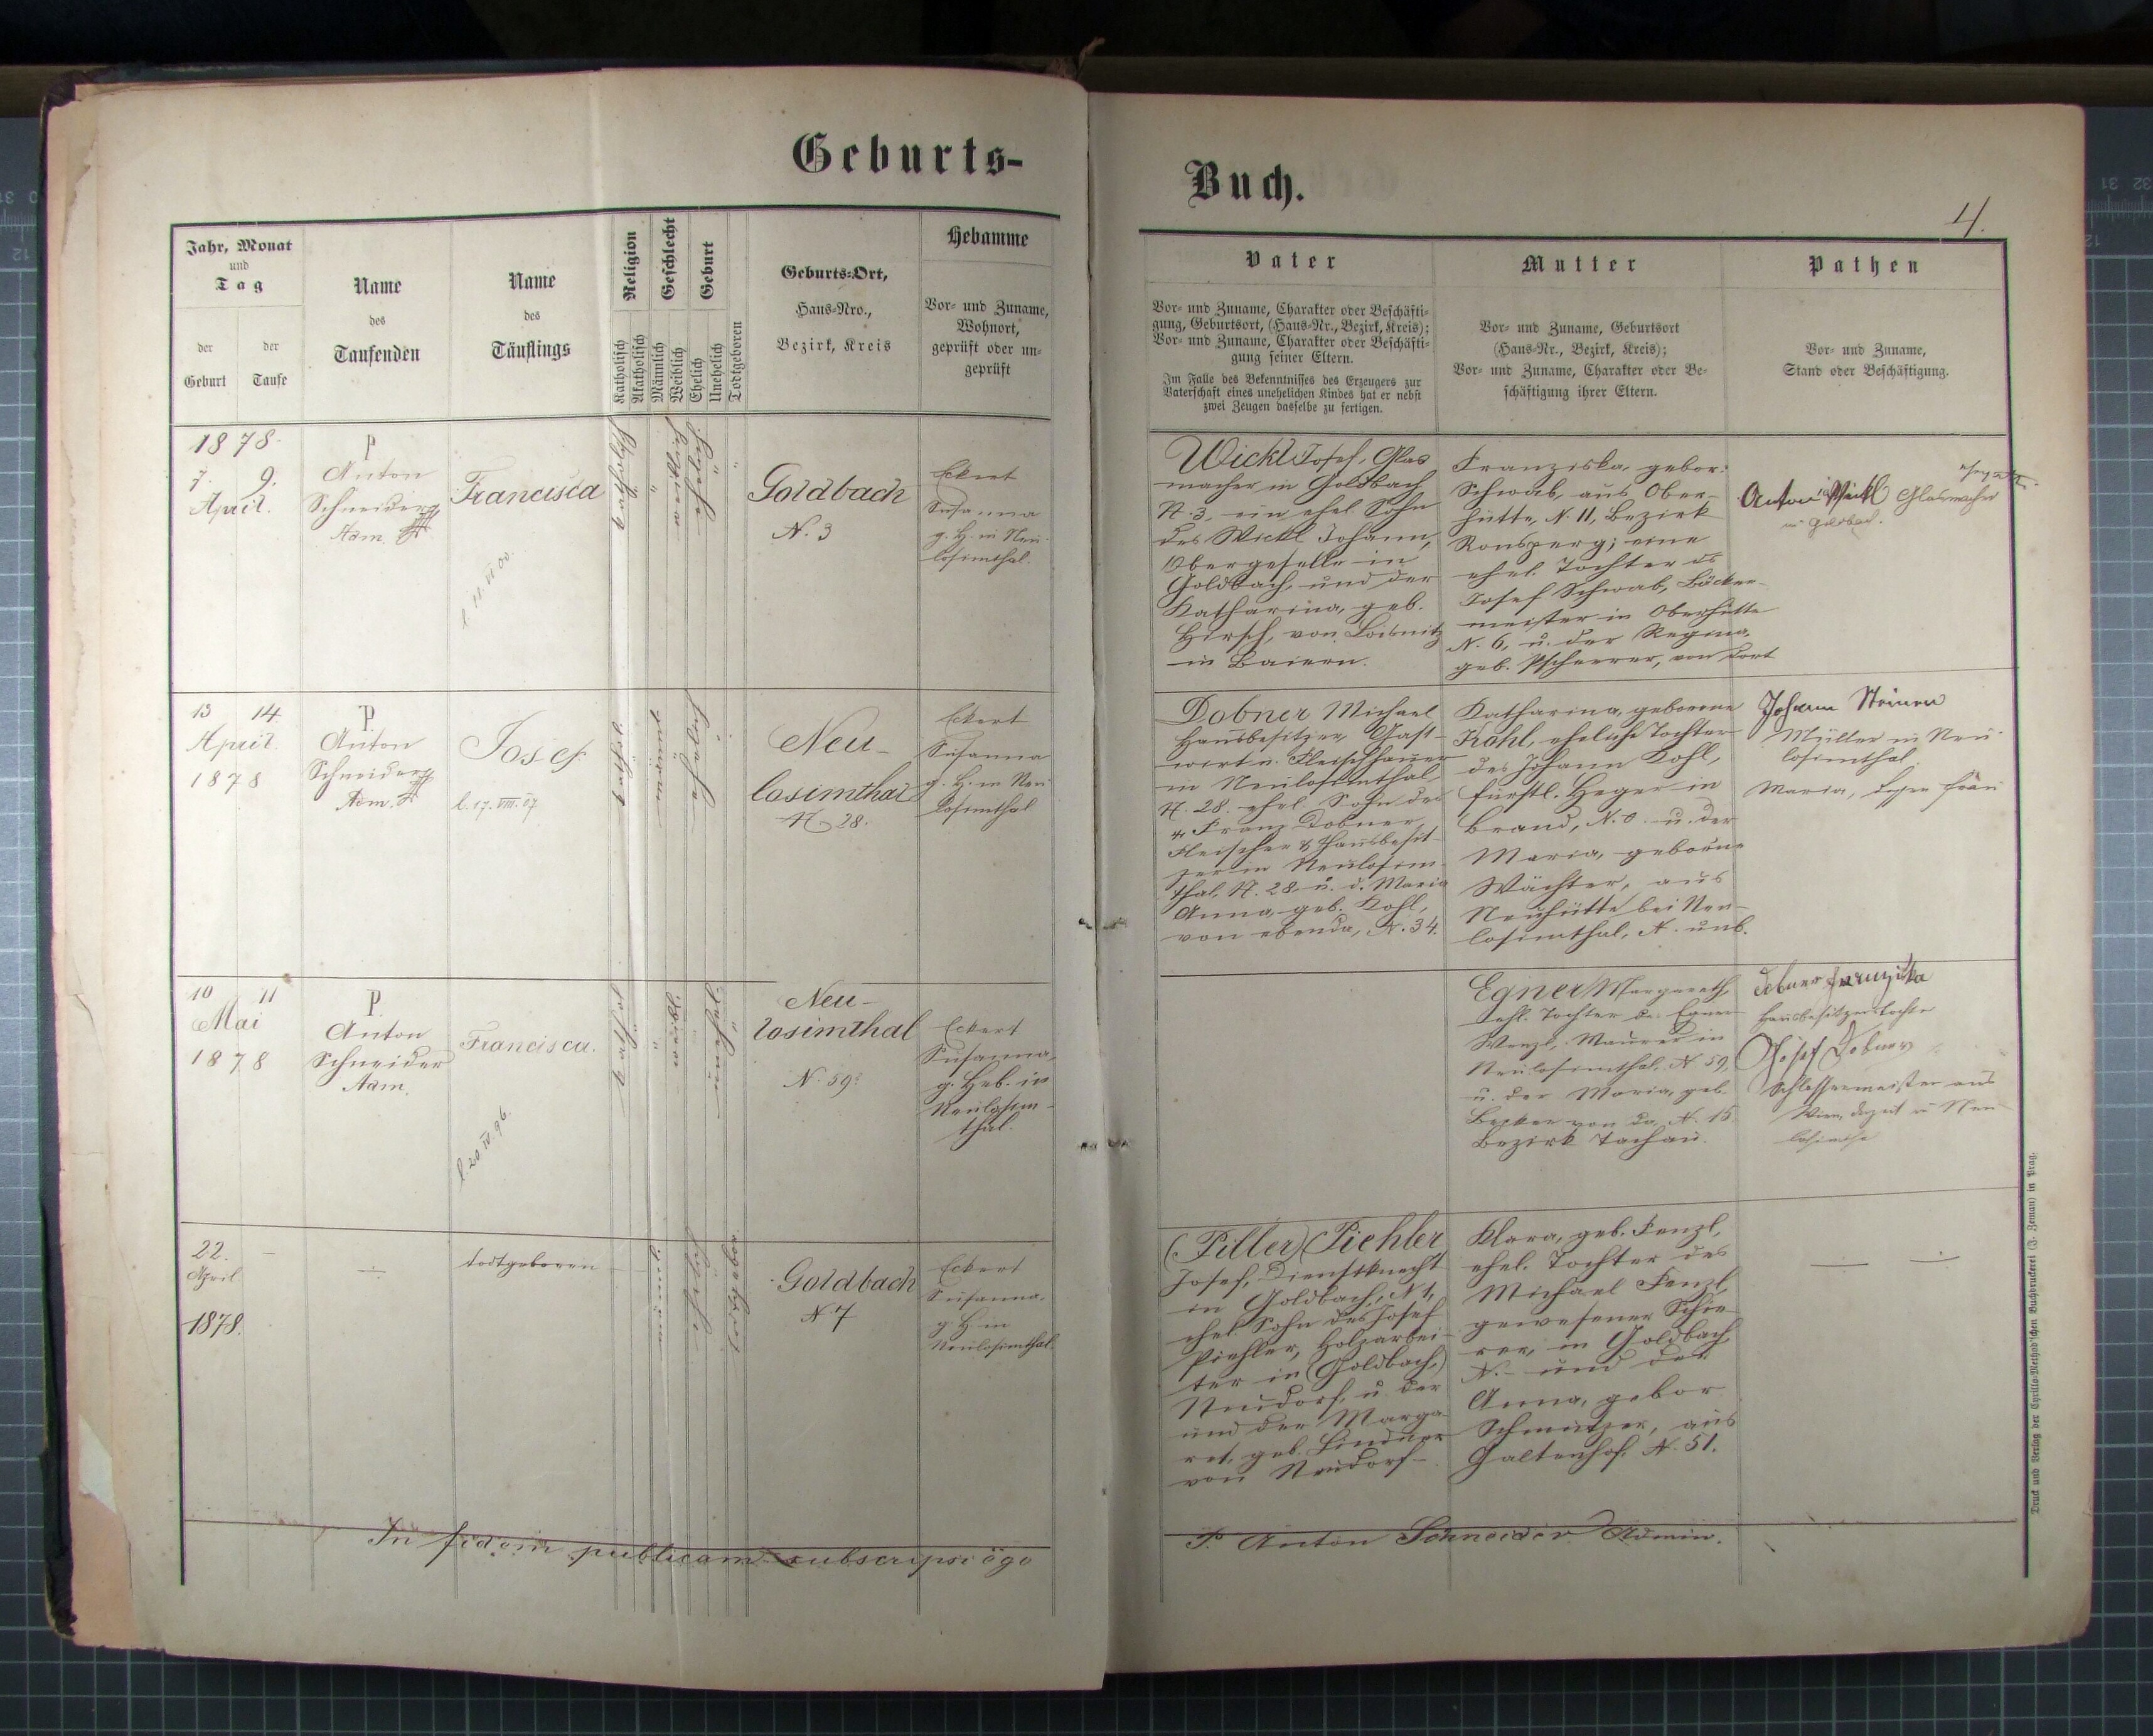 Geburts-
Jahr, Monat
und
Tag
der
Geburt
der
Taufe
Name
des
Taufenden
Name
des
Täuflings
Religion
Katholisch
Akatholisch
Geschlecht
Männlich
Weiblich
Geburt
Ehelich
Unehelich
Todtgeboren
Geburts-Ort,
Haus-Nro.,
Bezirk, Kreis
Hebamme
Vor- und Zuname,
Wohnort,
geprüft oder un-
geprüft
1878
7. 9.
April.
P
Anton
Schneider
Adm.
Francisca
l. 11. VI. 00.
katholisch
"
weiblich
ehelich
"
Goldbach
N. 3
Eckert
Susanna
g. H. in Neu-
losimthal.
13 14
April.
1878
P.
Anton
Schneider
Adm.
Josef
l. 17. VIII. 07
kathol.
männl.
ehelich
Neu-
losimthal
N 28.
Eckert
Susanna
g. H. in Neu
losimthal
10 11
Mai
1878
P.
Anton
Schneider
Adm.
Francisca.
l. 20 IV 96.
kathol.
"
weibl.
unehel.
Neu-
losimthal
N. 59
Eckert
Susanna,
g. Heb. in
Neulosim-
thal.
22. –
April.
1878.
todtgeboren
männl.
ehelich
todtgebor.
Goldbach
N. 7
Eckert
Susanna.
g. H. in
Neulosimthal.
In fidem publicam subscripsi ego
Buch.
4.
Vater
Vor- und Zuname, Charakter oder Beschäfti-
gung, Geburtsort, (Haus-Nr., Bezirk, Kreis);
Vor- und Zuname, Charakter oder Beschäfti-
gung seiner Eltern.
Im Falle des Bekenntnisses des Erzeugers zur
Vaterschaft eines unehelichen Kindes hat er nebst
zwei Zeugen dasselbe zu fertigen.
Mutter
Vor- und Zuname, Geburtsort
(Haus-Nr., Bezirk, Kreis);
Vor- und Zuname, Charakter oder Be-
schäftigung ihrer Eltern.
Pathen
Vor- und Zuname,
Stand oder Beschäftigung.
Wickl Josef, Glas
macher in Goldbach
N. 3, ein ehel. Sohn
des Wickl Johann,
Obergeselle in
Goldbach, und der
Katharina, geb.
Hirsch, von
in Baiern.
Franziska, gebor.
Schwab, aus Ober-
hütte, N. 11, Bezirk
Ronsperg; eine
ehel. Tochter ds
Josef Schwab, Bäcker-
meister in Oberhütte
N. 6, u. der Regina,
geb. Pscherrer, von dort
Anton Wickl Glasmacher
in Goldbach.
Dobner Michael
Hausbesitzer, Gast-
wirt u. Fleischhauer
in Neulosimthal
N. 28. ehel. Sohn des
Franz Dobner,
Fleischer & Hausbesit-
zer in Neulosim-
thal, N. 28 u. d. Maria
Anna, geb. Kohl,
von ebenda, N. 34.
Katharina, geborene
Kohl, eheliche Tochter
des Johann Kohl,
fürstl. Heger in
Brand, N. 0. u. der
Maria, geborne
Wächter, aus
Neuhütte bei Neu-
losimthal, N. unb.
Johann
Müller in Neu-
losimthal.
Maria, dessen Frau
Egner Margareth,
ehl. Tochter des Egner
Wenzl, Maurer in
Neulosimthal, N. 59,
u. der Maria, geb.
Becker von da, N. 15
Bezirk Tachau.
Dobner Franziska
Hausbesitzerstochter
Josef Dobner
Schlossermeister aus
Wien, derzeit in Neu-
losimthal
(Piller) Piehler
Josef, Dienstknecht
in Goldbach, N 1,
ehel. Sohn des Josef
Piehler, Holzarbei-
ter in (Goldbach,)
Neudorf, u. der
und der Marga-
ret, geb. Lindner
von Neudorf –
Klara, geb. Fenzl,
ehel. Tochter des
Michael Fenzl,
gewesener Schie-
rer, in Goldbach
N. – und der
Anna, gebor
Schmutzer, aus
Galtenhof. N. 51.
P. Anton Schneider Admin.
Druck und Verlag der Cyrillo-Method'schen Buchdruckerei (J. Zeman) in Prag.